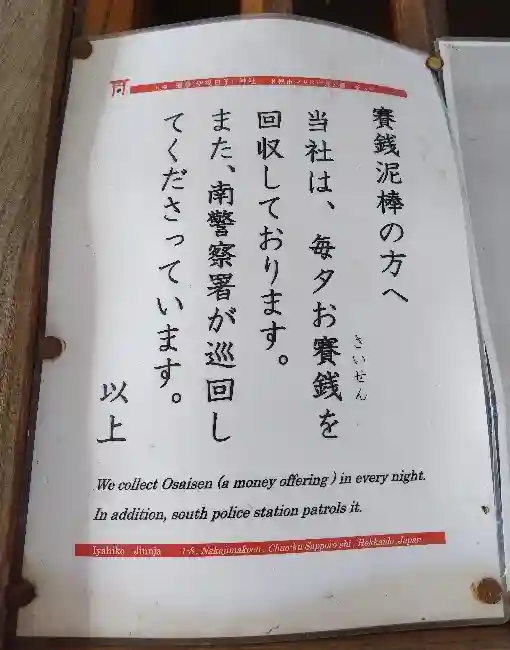 賽銭泥棒の方へ
当社は、毎夕お賽銭を
さいせん
回収しております。
また、南警察署が巡回し
てくださっています。
以上
We collect Osaisen (a money offering) in every night.
In addition, south police station patrols it.
Iyahiko Jinnja 1-8, Nakajimakoen, Chuo-ku Sapporo shi, Hokkaido, Japan